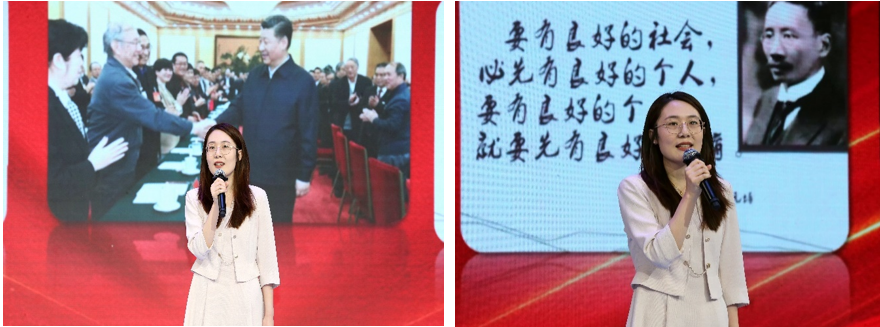 要有良好的社会，
必先有良好的个人，
要有良好的个
就要先有良好